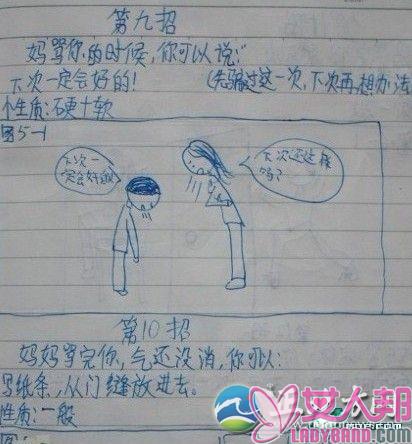 第九招
妈骂你的时候,你可以说:"
下次一定会好的! (先骗过这一次,下次再想办法
个性质:硬十软
图5-1
下次一
定会好的
下次还这样
吗?
第10招
妈妈骂完你,气还没消,你可以:
写纸条,从门缝放进去。
性质:一般
女人邦
LADYBAND.COM